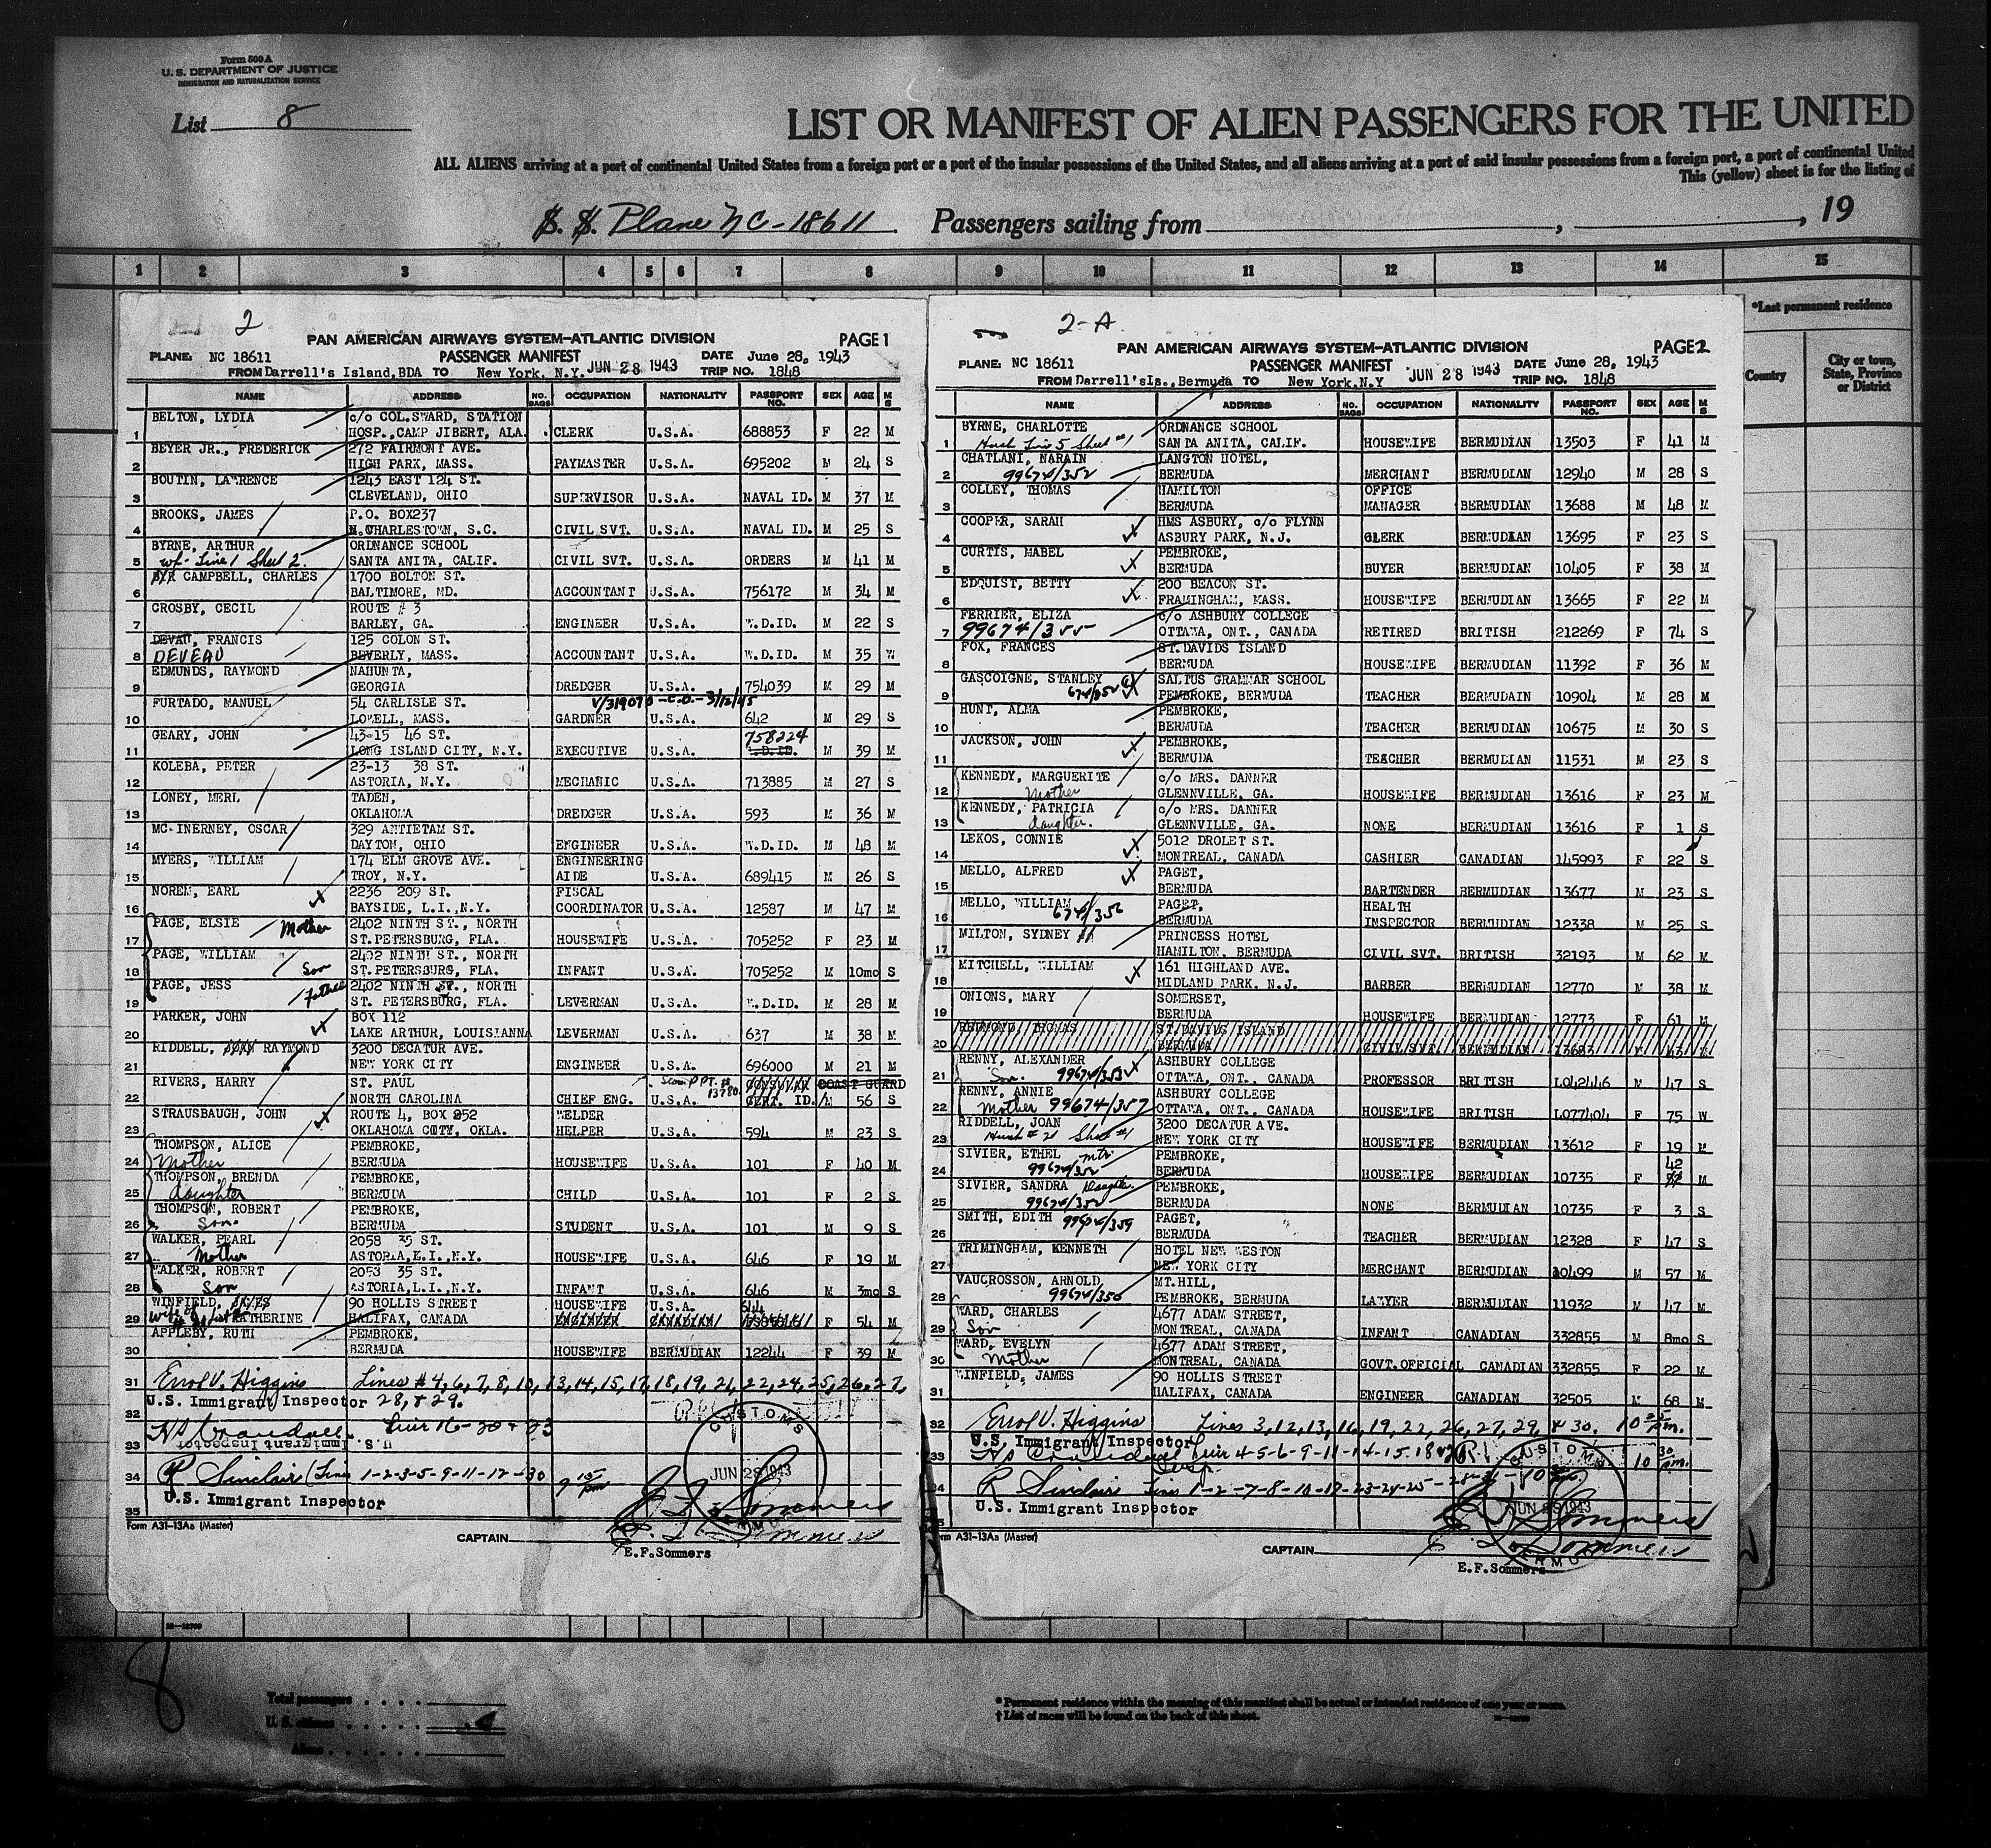 Form 500 A
U. S. DEPARTMENT OF JUSTICE
IMMIGRATION AND NATURALIZATION SERVICE
List 8
LIST OR MANIFEST OF ALIEN PASSENGERS FOR THE UNITED
ALL ALIENS arriving at a port of continental United States from a foreign port or a port of the insular possessions of the United States, and all aliens arriving at a port of said insular possessions from a foreign port, a port of continental United
This (yellow) sheet is for the listing of
S. S. Plane NC-18611 Passengers sailing from , , 19
1 2 3 4 5 6 7 8 9 10 11 12 13 14 15
*Last permanent residence
Country
City or town, State, Province or District
2
PAN AMERICAN AIRWAYS SYSTEM-ATLANTIC DIVISION PAGE 1
PLANE: NC 18611 PASSENGER MANIFEST JUN 28 1943 DATE June 28, 1943
FROM Darrell's Island, BDA TO New York, N.Y. TRIP NO. 1848
NAME ADDRESS NO. BAGS OCCUPATION NATIONALITY PASSPORT NO. SEX AGE M S
BELTON, LYDIA c/o COL.SWARD, STATION
1 HOSP.,CAMP JIBERT, ALA. CLERK U.S.A. 688853 F 22 M
BEYER JR., FREDERICK 272 FAIRMONT AVE.
2 HIGH PARK, MASS. PAYMASTER U.S.A. 695202 M 24 S
BOUTIN, LAWRENCE 1243 EAST 124 ST.
3 CLEVELAND, OHIO SUPERVISOR U.S.A. NAVAL ID. M 37 M
BROOKS, JAMES P.O. BOX237
4 N.CHARLESTOWN, S.C. CIVIL SVT. U.S.A. NAVAL ID. M 25 S
BYRNE, ARTHUR ORDNANCE SCHOOL
5 wf- Line 1 Sheet 2. SANTA ANITA, CALIF. CIVIL SVT. U.S.A. ORDERS M 41 M
CAMPBELL, CHARLES 1700 BOLTON ST.
6 BALTIMORE, MD. ACCOUNTANT U.S.A. 756172 M 34 M
CROSBY, CECIL ROUTE # 3
7 BARLEY, GA. ENGINEER U.S.A. W.D.ID. M 22 S
DEVAU, FRANCIS 125 COLON ST.
8 DEVEAU BEVERLY, MASS. ACCOUNTANT U.S.A. W.D.ID. M 35 W
EDMUNDS, RAYMOND NAHUNTA,
9 GEORGIA DREDGER U.S.A. 754039 M 29 M
FURTADO, MANUEL 54 CARLISLE ST. V/319070 -C.O.- 3/12/45
10 LOWELL, MASS. GARDNER U.S.A. 642 M 29 S
GEARY, JOHN 43-15 46 ST. 758224
11 LONG ISLAND CITY, N.Y. EXECUTIVE U.S.A. W.D.ID. M 39 M
KOLEBA, PETER 23-13 38 ST.
12 ASTORIA, N.Y. MECHANIC U.S.A. 713885 M 27 S
LONEY, MERL TADEN,
13 OKLAHOMA DREDGER U.S.A. 593 M 36 M
MC INERNEY, OSCAR 329 ANTIETAM ST.
14 DAYTON, OHIO ENGINEER U.S.A. W.D.ID. M 48 M
MYERS, WILLIAM 174 ELM GROVE AVE. ENGINEERING
15 TROY, N.Y. AIDE U.S.A. 689415 M 26 S
NOREM, EARL 2236 209 ST. FISCAL
16 BAYSIDE, L.I.,N.Y. COORDINATOR U.S.A. 12587 M 47 M
PAGE, ELSIE Mother 2402 NINTH ST., NORTH
17 ST.PETERSBURG, FLA. HOUSEWIFE U.S.A. 705252 F 23 M
PAGE, WILLIAM 2402 NINTH ST., NORTH
18 Son ST.PETERSBURG, FLA. INFANT U.S.A. 705252 M 10mo S
PAGE, JESS Father 2402 NINTH ST., NORTH
19 ST. PETERSBURG, FLA. LEVERMAN U.S.A. W.D.ID. M 28 M
PARKER, JOHN BOX 112
20 LAKE ARTHUR, LOUISIANNA LEVERMAN U.S.A. 637 M 38 M
RIDDELL, RAYMOND 3200 DECATUR AVE.
21 NEW YORK CITY ENGINEER U.S.A. 696000 M 21 M
RIVERS, HARRY ST. PAUL PPT. # 13780 CONSULAR COAST GUARD
22 NORTH CAROLINA CHIEF ENG. U.S.A. CERT. ID. M 56 S
STRAUSBAUGH, JOHN ROUTE 4, BOX 252 WELDER
23 OKLAHOMA CITY, OKLA. HELPER U.S.A. 594 M 23 S
THOMPSON, ALICE PEMBROKE,
24 Mother BERMUDA HOUSEWIFE U.S.A. 101 F 40 M
THOMPSON, BRENDA PEMBROKE,
25 daughter BERMUDA CHILD U.S.A. 101 F 2 S
THOMPSON, ROBERT PEMBROKE,
26 Son BERMUDA STUDENT U.S.A. 101 M 9 S
WALKER, PEARL 2058 35 ST.
27 Mother ASTORIA,L.I.,N.Y. HOUSEWIFE U.S.A. 646 F 19 M
WALKER, ROBERT 2058 35 ST.
28 Son ASTORIA,L.I.,N.Y. INFANT U.S.A. 646 M 3mo S
WINFIELD, JAMES 90 HOLLIS STREET HOUSEWIFE U.S.A. 644
29 wife of KATHERINE HALIFAX, CANADA ENGINEER CANADIAN F 54 M
APPLEBY, RUTH PEMBROKE,
30 BERMUDA HOUSEWIFE BERMUDIAN 12244 F 39 M
31 Errol V. Higgins Lines #4,6,7,8,10,13,14,15,17,18,19,21,22,24,25,26,27,
U.S. Immigrant Inspector 28, & 29.
32
HS Crandall Line 16-20 & 23
33 U.S. Immigrant Inspector
34 R Sinclair Lines 1-2-3-5-9-11-12-30 9 15 pm
U.S. Immigrant Inspector
35
CUSTOMS JUN 28 1943 BERMUDA
Form A31-13Aa (Master)
CAPTAIN E. F. Sommers
E.F.Sommers
2-A
PAN AMERICAN AIRWAYS SYSTEM-ATLANTIC DIVISION PAGE 2
PLANE: NC 18611 PASSENGER MANIFEST JUN 28 1943 DATE June 28, 1943
FROM Darrell'sIs., Bermuda TO New York.N.Y TRIP NO. 1848
NAME ADDRESS NO. BAGS OCCUPATION NATIONALITY PASSPORT NO. SEX AGE M S
BYRNE, CHARLOTTE ORDNANCE SCHOOL
1 Husb Line 5 Sheet #1 SANTA ANITA, CALIF. HOUSEWIFE BERMUDIAN 13503 F 41 M
CHATLANI, NARAIN LANGTON HOTEL,
2 99674/352 BERMUDA MERCHANT BERMUDIAN 12940 M 28 S
COLLEY, THOMAS HAMILTON OFFICE
3 BERMUDA MANAGER BERMUDIAN 13688 M 48 M
COOPER, SARAH HMS ASBURY, c/o FLYNN
4 ASBURY PARK, N.J. CLERK BERMUDIAN 13695 F 23 S
CURTIS, MABEL PEMBROKE,
5 BERMUDA BUYER BERMUDIAN 10405 F 38 M
EDQUIST, BETTY 200 BEACON ST.
6 FRAMINGHAM, MASS. HOUSEWIFE BERMUDIAN 13665 F 22 M
FERRIER, ELIZA c/o ASHBURY COLLEGE
7 99674/355 OTTAWA, ONT., CANADA RETIRED BRITISH 212269 F 74 S
FOX, FRANCES ST.DAVIDS ISLAND
8 BERMUDA HOUSEWIFE BERMUDIAN 11392 F 36 M
GASCOIGNE, STANLEY SALTUS GRAMMAR SCHOOL
9 PEMBROKE, BERMUDA TEACHER BERMUDAIN 10904 M 28 M
HUNT, ALMA PEMBROKE,
10 BERMUDA TEACHER BERMUDIAN 10675 M 30 S
JACKSON, JOHN PEMBROKE,
11 BERMUDA TEACHER BERMUDIAN 11531 M 23 S
KENNEDY, MARGUERITE c/o MRS. DANNER
12 Mother GLENNVILLE, GA. HOUSEWIFE BERMUDIAN 13616 F 23 M
KENNEDY, PATRICIA c/o MRS. DANNER
13 daughter. GLENNVILLE, GA. NONE BERMUDIAN 13616 F 1 S
LEKOS, CONNIE 5012 DROLET ST.
14 MONTREAL, CANADA CASHIER CANADIAN 145993 F 22 S
MELLO, ALFRED PAGET,
15 BERMUDA BARTENDER BERMUDIAN 13677 M 23 S
MELLO, WILLIAM PAGET, HEALTH
16 674/356 BERMUDA INSPECTOR BERMUDIAN 12338 M 25 S
MILTON, SYDNEY PRINCESS HOTEL
17 HAMILTON, BERMUDA CIVIL SVT. BRITISH 32193 M 62 M
MITCHELL, WILLIAM 161 HIGHLAND AVE.
18 MIDLAND PARK, N.J. BARBER BERMUDIAN 12770 M 38 M
ONIONS, MARY SOMERSET,
19 BERMUDA HOUSEWIFE BERMUDIAN 12773 F 61 M
REDMOND, THOMAS ST.DAVIDS ISLAND
20 BERMUDA CIVIL SVT. BERMUDIAN 13683 M 43 M
RENNY, ALEXANDER ASHBURY COLLEGE
21 Son. 99674/353 OTTAWA, ONT., CANADA PROFESSOR BRITISH L042446 M 47 S
RENNY, ANNIE ASHBURY COLLEGE
22 Mother 99674/357 OTTAWA, ONT., CANADA HOUSEWIFE BRITISH L077404 F 75 W
RIDDELL, JOAN 3200 DECATUR AVE.
23 Husb # 21 Sheet #1 NEW YORK CITY HOUSEWIFE BERMUDIAN 13612 F 19 M
SIVIER, ETHEL PEMBROKE, 42
24 BERMUDA HOUSEWIFE BERMUDIAN 10735 F M
SIVIER, SANDRA Daughter PEMBROKE,
25 BERMUDA NONE BERMUDIAN 10735 F 3 S
SMITH, EDITH 99674/359 PAGET,
26 BERMUDA TEACHER BERMUDIAN 12328 F 47 S
TRIMINGHAM, KENNETH HOTEL NEW WESTON
27 NEW YORK CITY MERCHANT BERMUDIAN 10499 M 57 M
VAUCROSSON, ARNOLD MT.HILL,
28 99674/350 PEMBROKE, BERMUDA LAWYER BERMUDIAN 11932 M 47 M
WARD, CHARLES 4677 ADAM STREET,
29 Son MONTREAL, CANADA INFANT CANADIAN 332855 M 8mo S
WARD, EVELYN 4677 ADAM STREET,
30 Mother MONTREAL, CANADA GOVT.OFFICIAL CANADIAN 332855 F 22 M
WINFIELD, JAMES 90 HOLLIS STREET
31 HALIFAX, CANADA ENGINEER CANADIAN 32505 M 68 M
32 Errol V. Higgins Lines 3,12,13,16,19,22,26,27,29, & 30. 10 25 pm.
U.S. Immigrant Inspector
33 HS Crandall Line 4-5-6-9-11-14-15-18 10 30 pm.
34 R Sinclair Lines 1-2-7-8-10-17-23-24-25-28-31
U.S. Immigrant Inspector
CUSTOMS JUN 28 1943 BERMUDA
Form A31-13Aa (Master)
CAPTAIN E. F. Sommers
E.F.Sommers
8
Total passengers
U. S. citizens
Aliens
* Permanent residence within the meaning of this manifest shall be actual or intended residence of one year or more.
† List of races will be found on the back of this sheet.